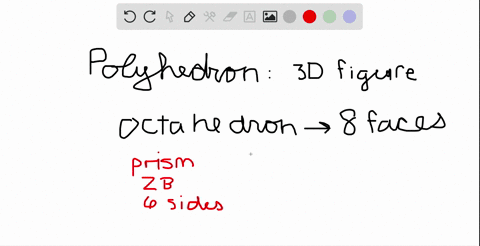 Polyhedron: 3D figure
Octahedron → 8 faces
prism
2B
6 sides